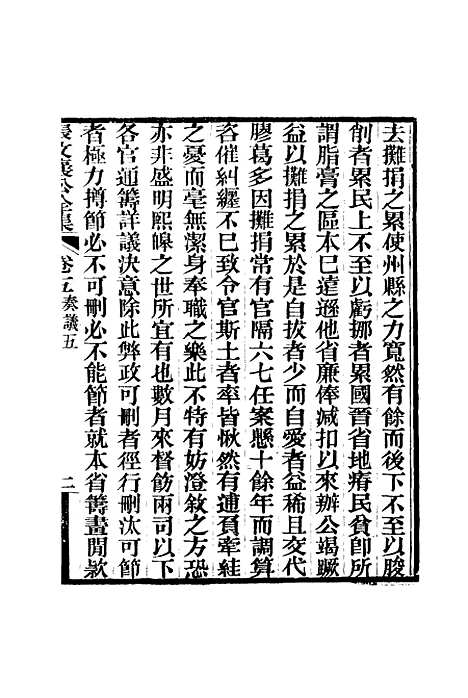 去攤捐之累使州縣之力寬然有餘而後下不至以朘
削者累民上不至以虧挪者累國晉省地瘠民貧卽所
謂脂膏之區本已遠遜他省廉俸减扣以來辦公竭蹶
益以攤捐之累於是自拔者少而自愛者益稀且交代
膠葛多因攤捐常有官隔六七任案懸十餘年而調算
咨催糾纏不已致令官斯土者率皆愀然有逋負牽絓
之憂而毫無潔身奉職之樂此不特有妨澄敘之方恐
亦非盛明熙皥之世所宜有也數月來督飭兩司以下
各官通籌詳議決意除此弊政可刪者徑行刪汰可節
者極力撙節必不可刪必不能節者就本省籌畫閒款
張文襄公全集 卷五奏議五 二